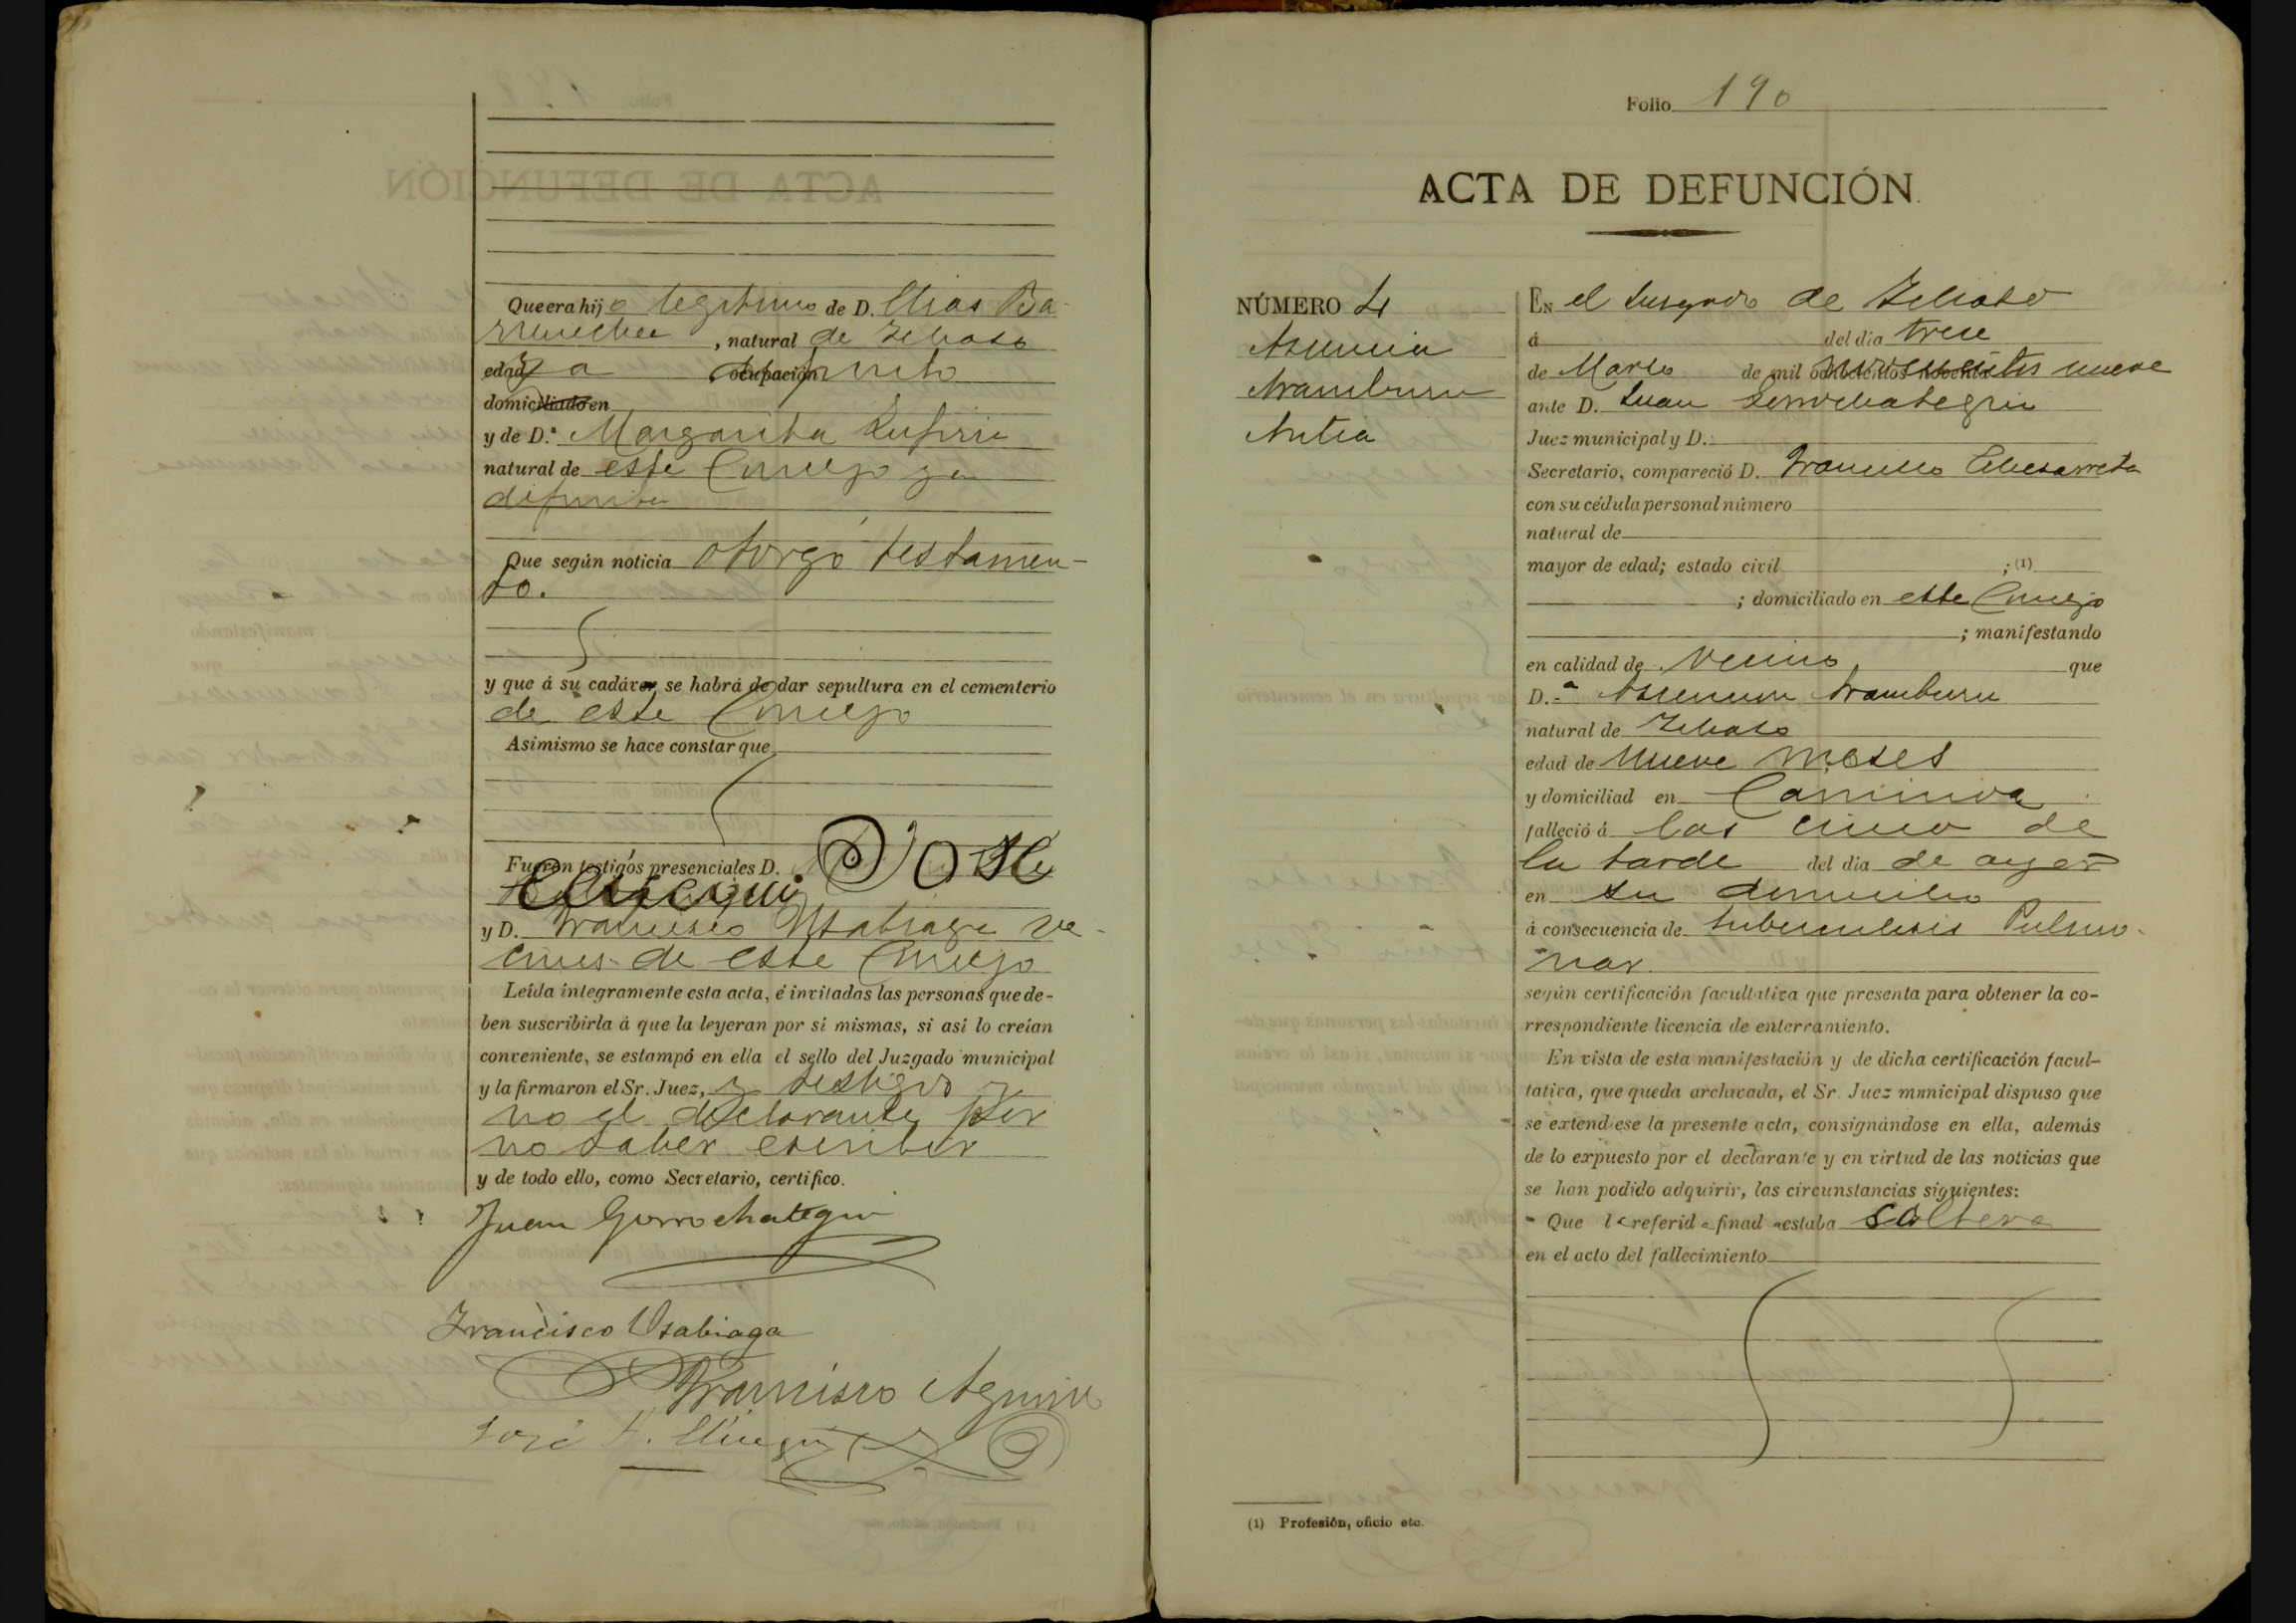 Que era hijo legitimo de D. Elias Ba-
rrenechea, natural de Ichaso
edad ya ocupación difunto
domiciliado en
y de D.ª Margarita Lufiria
natural de este Concejo ya
difunta
Que según noticia otorgó testamen-
to.
y que á su cadáver se habrá de dar sepultura en el cementerio
de este Concejo
Asimismo se hace constar que
Fueron testigos presenciales D. José
y D. Francisco Usabiaga ve-
cinos de este Concejo
Leída íntegramente esta acta, é invitadas las personas que de-
ben suscribirla á que la leyeran por sí mismas, si así lo creían
conveniente, se estampó en ella el sello del Juzgado municipal
y la firmaron el Sr. Juez, y testigos y
no el declarante por
no saber escribir
y de todo ello, como Secretario, certifico.
Juan Gorrochategui
Francisco Usabiaga
Francisco Aguirre
José
Folio 190
ACTA DE DEFUNCIÓN.
NÚMERO 4
Asuncia
Aramburu
Antia
En el Jusgado de Ichaso
á del dia trece
de Marzo de mil ochocientos noventa novecientos nueve
ante D. Juan Gorrochategui
Juez municipal y D.
Secretario, compareció D. Francisco Echezarreta
con su cédula personal número
natural de
mayor de edad; estado civil ; (1)
; domiciliado en este Concejo
; manifestando
en calidad de vecino, que
D.ª Asuncion Aramburu
natural de Ichaso
edad de nueve meses
y domiciliad en Caminoa
falleció á las cinco de
la tarde del dia de ayer
en su domicilio
á consecuencia de tuberculosis Pulmo-
nar.
según certificación facultativa que presenta para obtener la co-
rrespondiente licencia de enterramiento.
En vista de esta manifestación y de dicha certificación facul-
tativa, que queda archivada, el Sr. Juez municipal dispuso que
se extendiese la presente acta, consignándose en ella, además
de lo expuesto por el declarante y en virtud de las noticias que
se han podido adquirir, las circunstancias siguientes:
Que la referida finada estaba soltera
en el acto del fallecimiento
(1) Profesión, oficio etc.